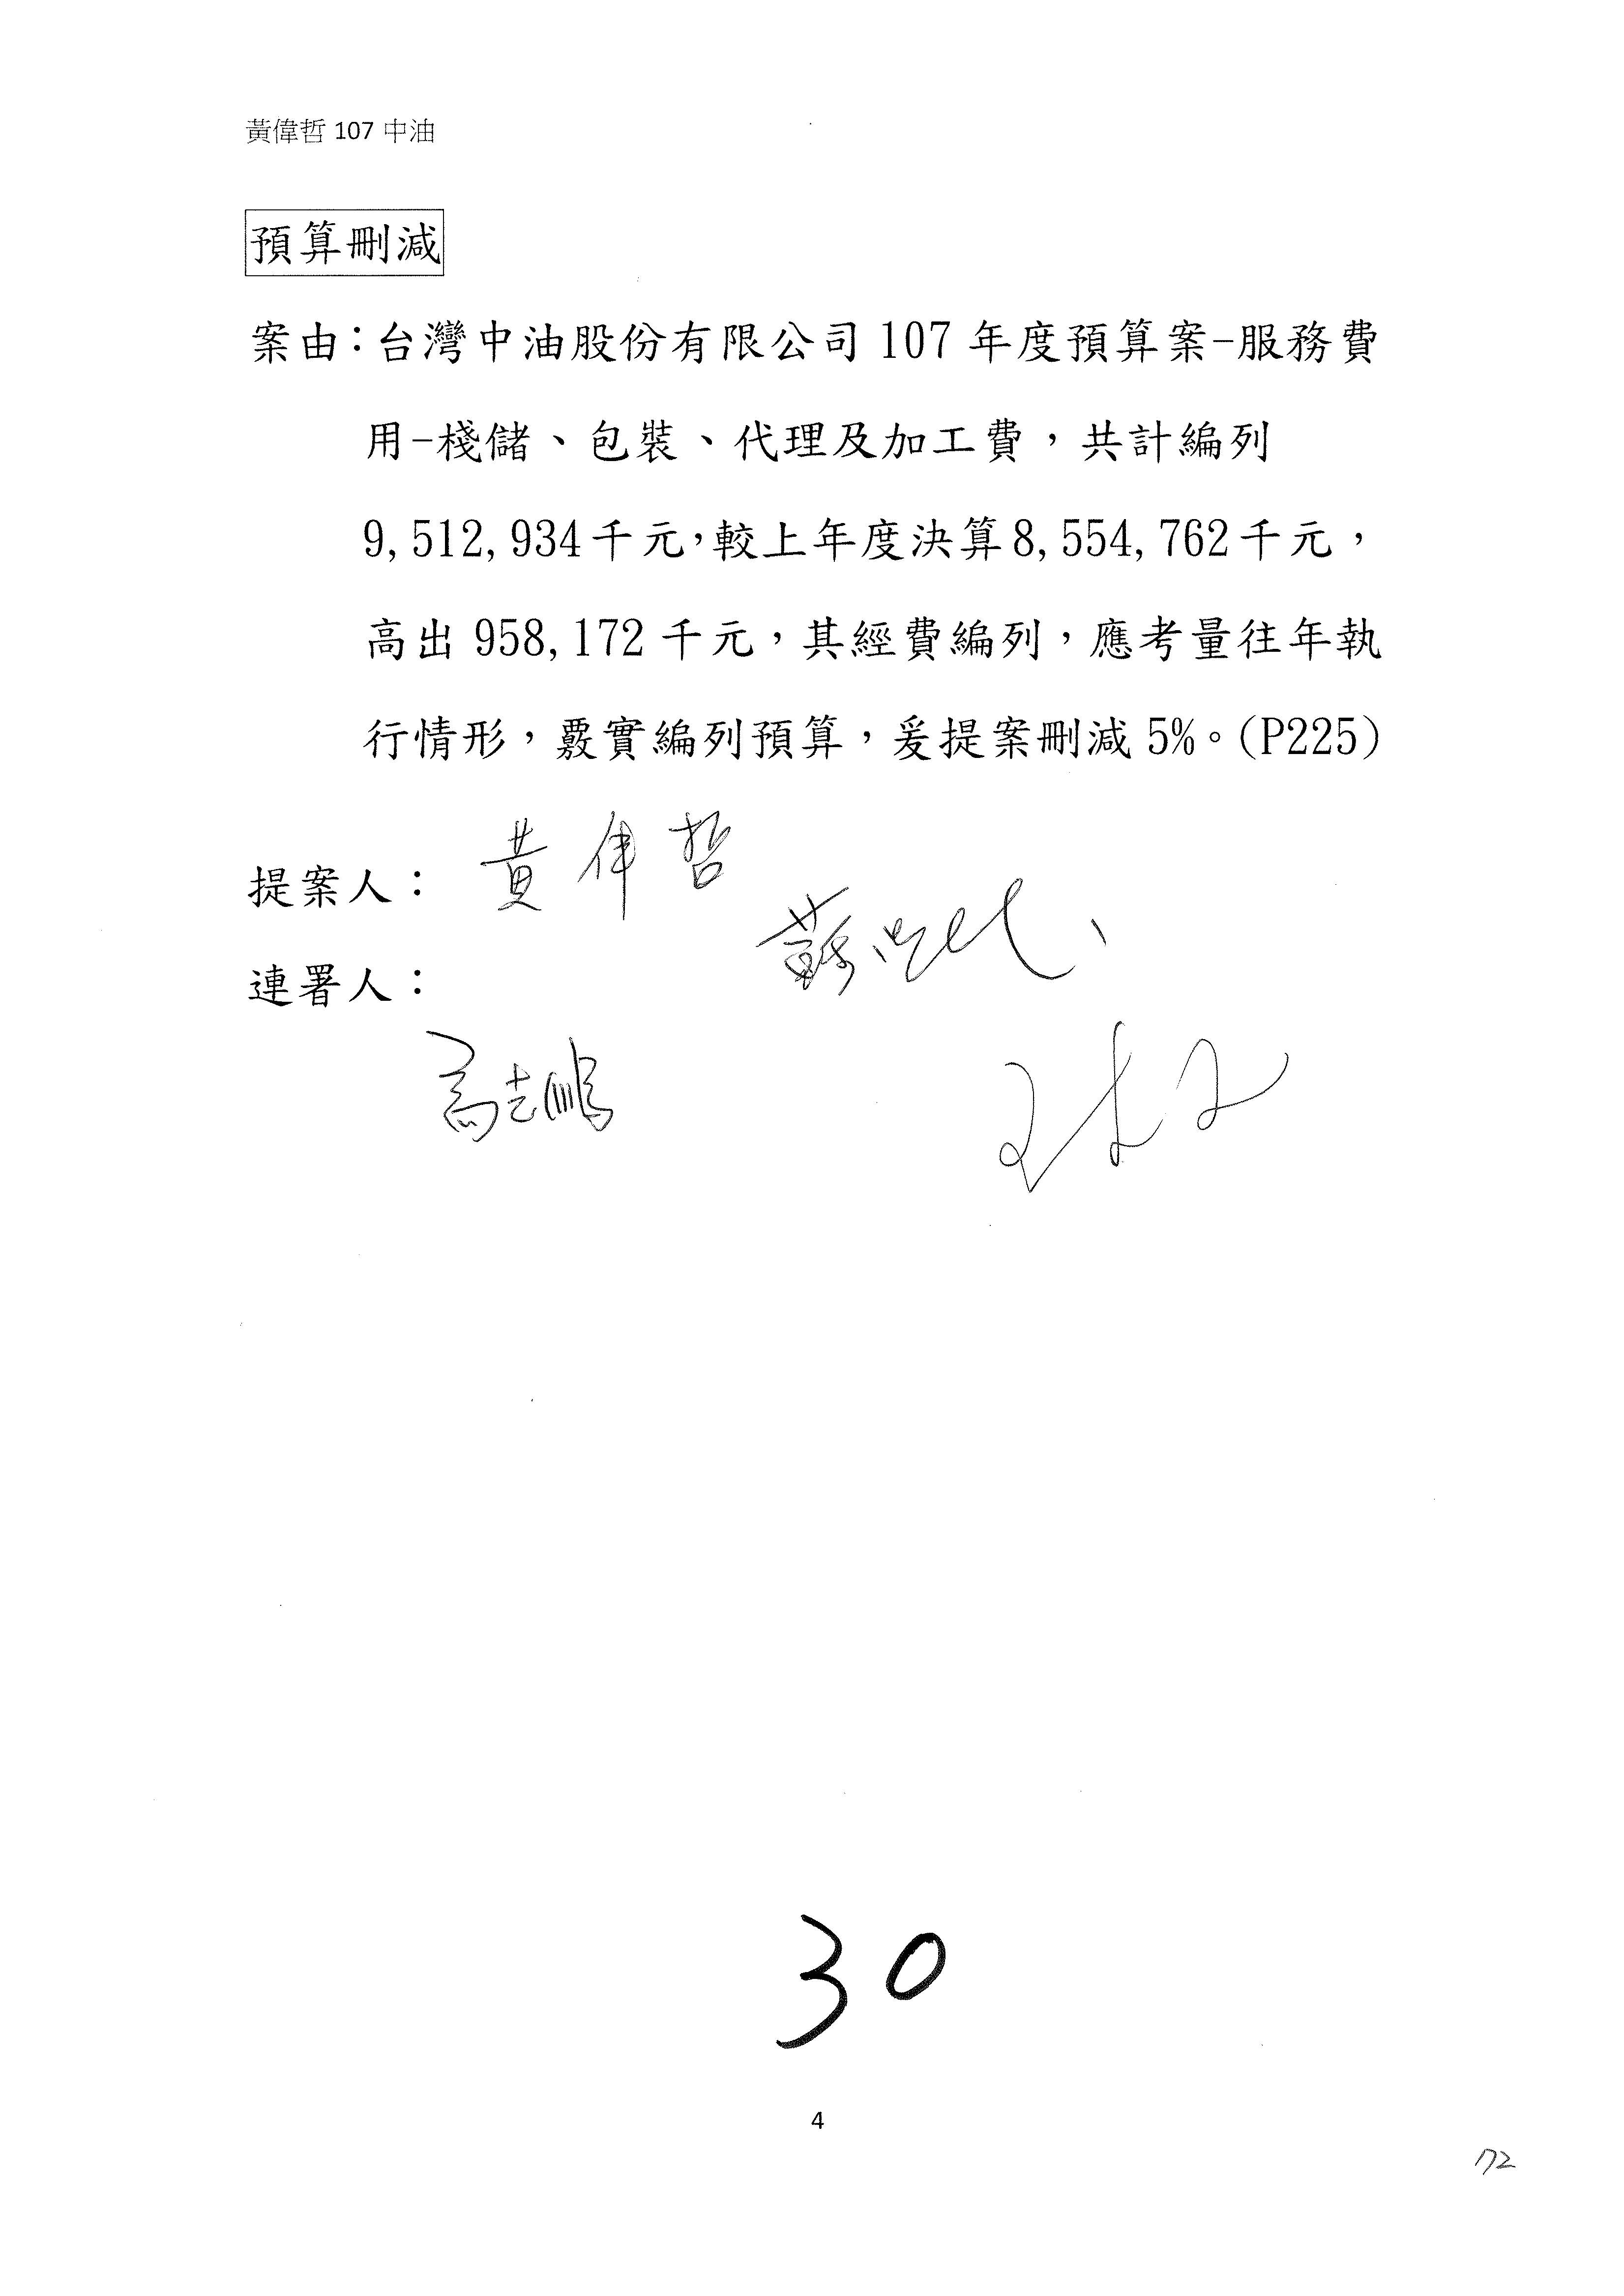 黃偉哲 107 中油
預算刪減
案由：台灣中油股份有限公司 107 年度預算案-服務費
用-棧儲、包裝、代理及加工費，共計編列
9,512,934 千元，較上年度決算 8,554,762 千元，
高出 958,172 千元，其經費編列，應考量往年執
行情形，覈實編列預算，爰提案刪減 5%。(P225)
提案人：黃偉哲
蘇
連署人：
高志鵬
30
4
172